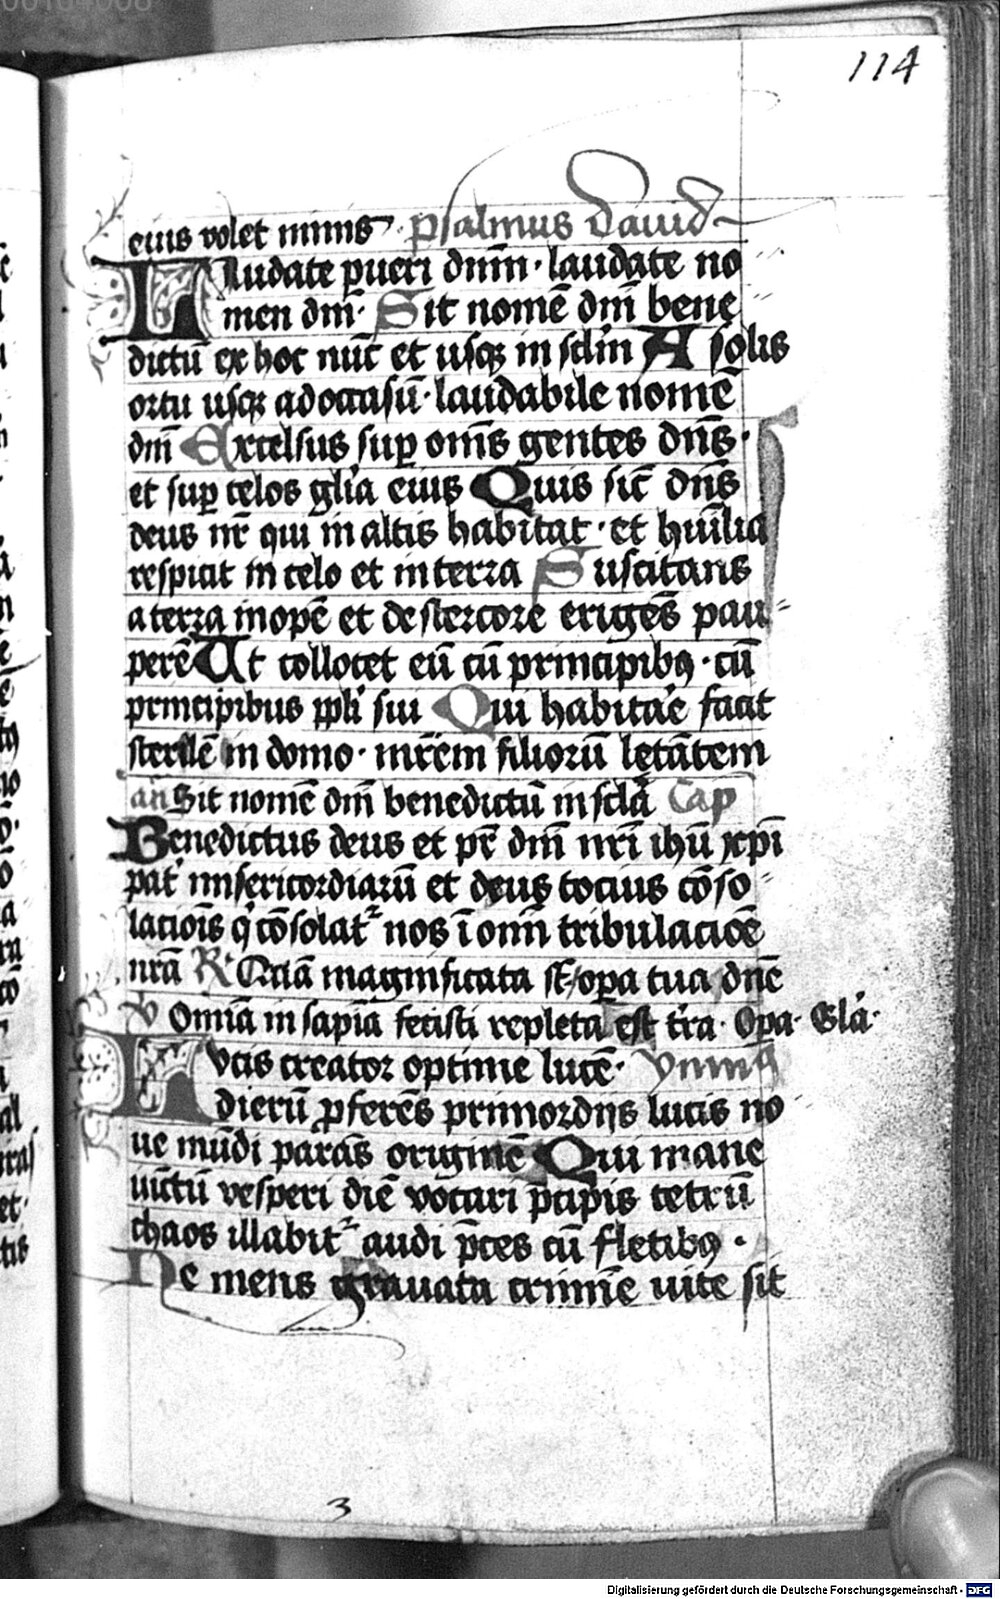 114
eius volet nimis psalmus dauid
LAudate pueri dnm̄· laudate no
men dm̄i· Sit nomē dm̄i bene
dictū ex hoc nūc et usqꝫ in sclm̄ A solis
ortu usqꝫ ad occasū· laudabile nomē
dm̄i Excelsus suꝑ om̄s gentes dn̄s·
et suꝑ celos gl̄ia eius Quis sic̄ dn̄s
deus nr̄ qui in altis habitat· et hūilia
respicit in celo et in terra Suscitans
a terra inopē et de stercore erigēs pau
perē Ut collocet eū cū principibꝯ· cū
principibus ppl̄i sui Qui habitar̄e facit
sterilē in domo· mr̄em filiorū letātem
an̄ Sit nomē dm̄i benedictū in scl̄a Cap
Benedictus deus et pr̄ dm̄i nr̄i ihū xp̄i
pat̄ misericordiarū et deus tocius cōso
lacioīs q̇ cōsolat̄ nos ī om̄i tribulacioē
nr̄a R Quā magnificata st̄ oꝑa tua dn̄e
V Omīa in sapīa fecisti repleta est tr̄a· Opa· Glā·
LUcis creator optime lucē· ymnꝯ
dierū ꝓferēs primordijs lucis no
ue mūdi parās originē Qui mane
uictū vesperi diē vocari p̄cipis tetrū
chaos illabit̄ audi p̄ces cū fletibꝯ·
Ne mens grauata crimīe uite sit
3
Digitalisierung gefördert durch die Deutsche Forschungsgemeinschaft - DFG